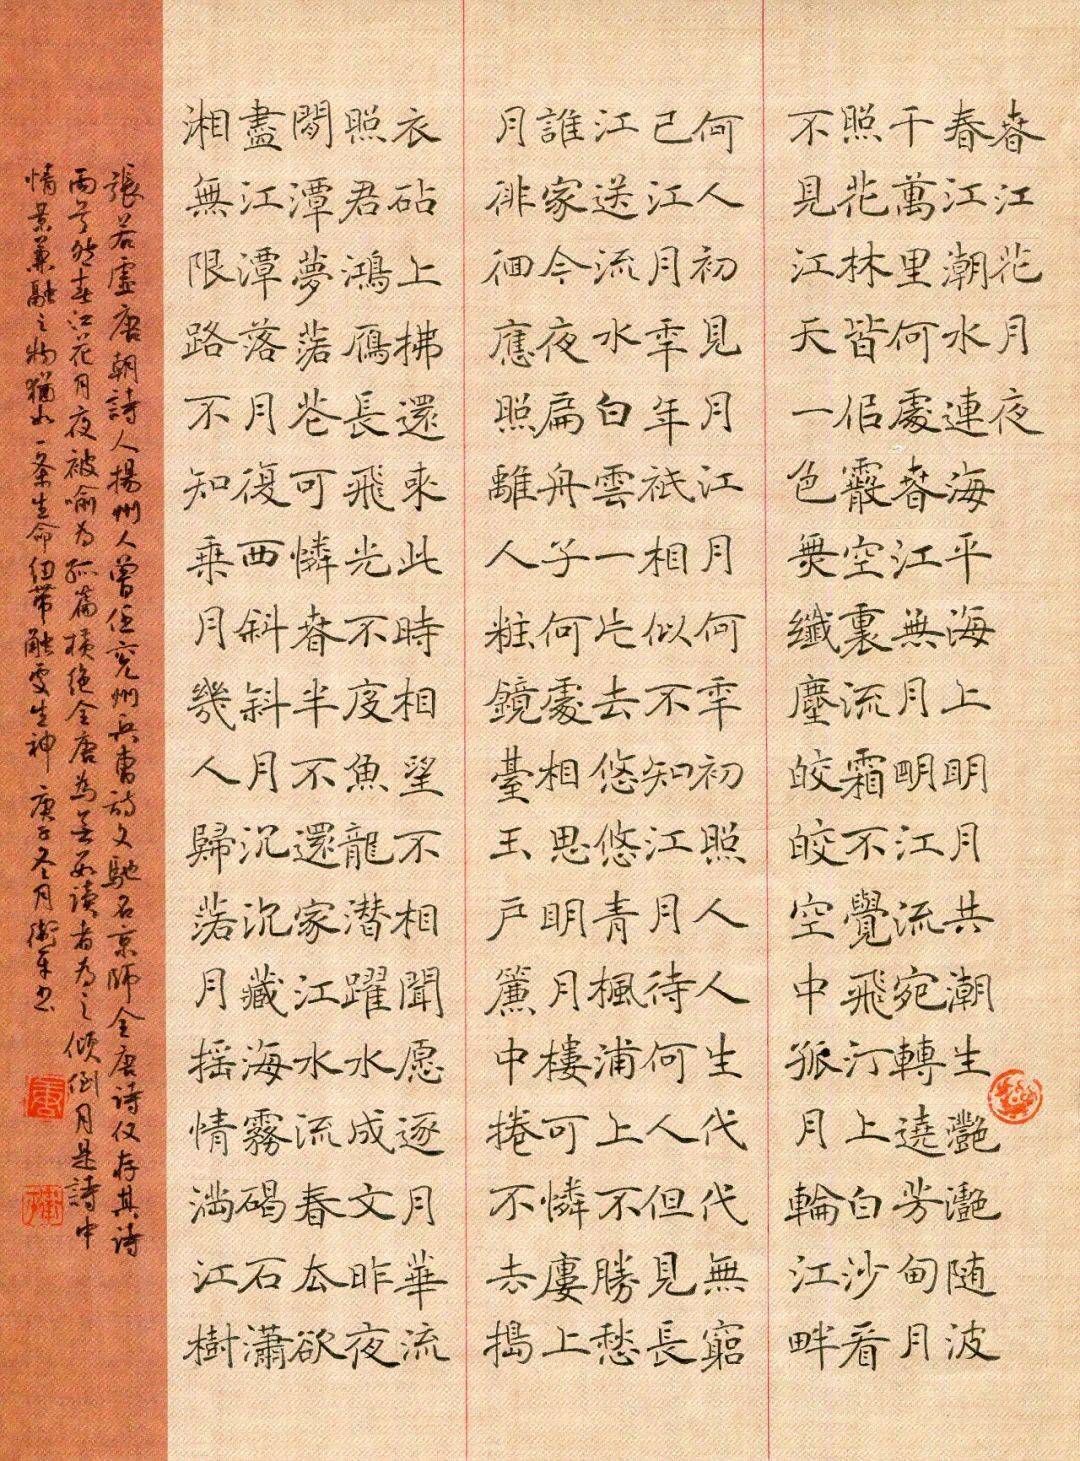 春江花月夜
春江潮水連海平海上明月共潮生灧灧随波
千萬里何處春江無月明江流宛轉遶芳甸月
照花林皆佀霰空裏流霜不覺飛汀上白沙看
不見江天一色無纖塵皎皎空中孤月輪江畔
何人初見月江月何年初照人人生代代無窮
已江月年年祇相似不知江月待何人但見長
江送流水白雲一片去悠悠青楓浦上不勝愁
誰家今夜扁舟子何處相思明月樓可憐廔上
月徘徊應照離人粧鏡臺玉戶簾中捲不去搗
衣砧上拂還來此時相望不相聞愿逐月華流
照君鴻雁長飛光不度魚龍潜躍水成文昨夜
閒潭夢落花可憐春半不還家江水流春去欲
盡江潭落月復西斜斜月沉沉藏海霧碣石瀟
湘無限路不知乘月幾人歸落月摇情滿江樹
張若虛唐朝詩人揚州人曾任兖州兵曹詩文馳名京師全唐诗仅存其诗
兩首然春江花月夜被喻为孤篇横绝全唐為无數读者为之倾倒月是詩中
情景兼融之物猶如一条生命纽带 生神 庚子冬月衛軍书
唐